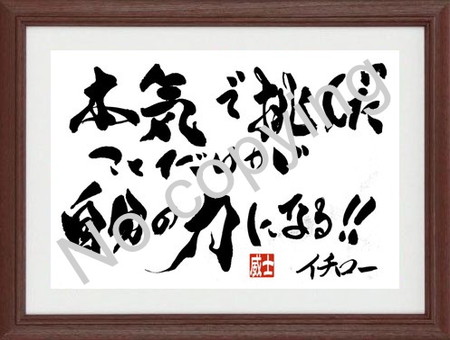 本気で挑
ことだけが
自分の力になる!!
威士
イチロー
No copying